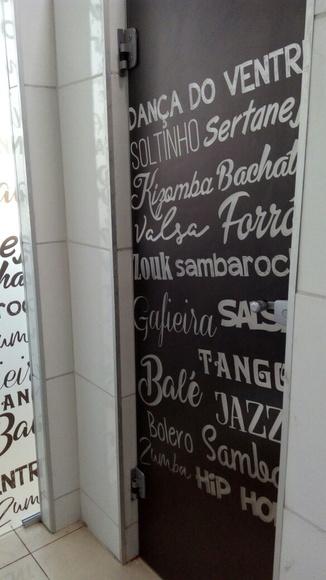 DANÇA DO VENTR
SOLTINHO Sertanej
Kizomba Bachat
Valsa Forró
Zouk sambaroc
Gafieira SALS
TANGO
Balé JAZZ
Bolero Samba
Zumba HIP HO